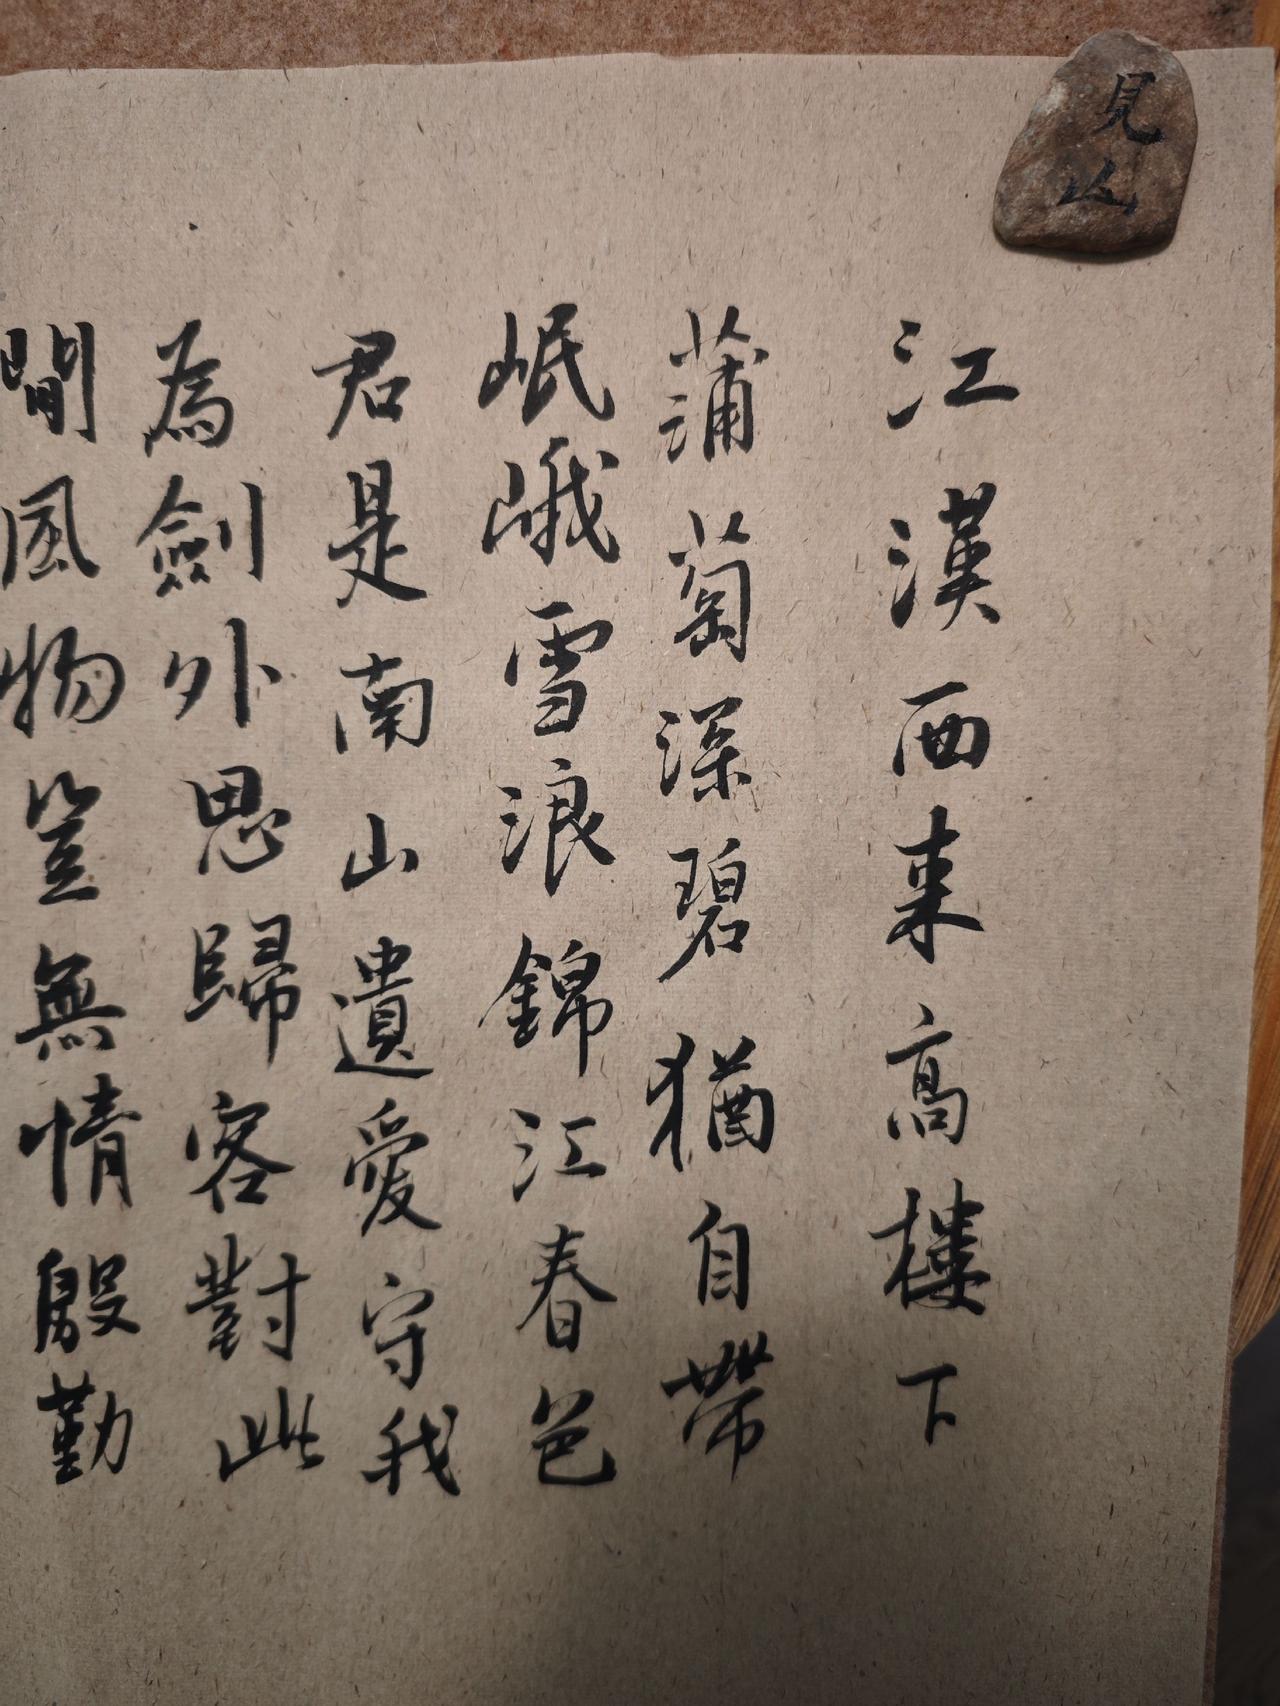 見山
江漢西来高樓下
蒲萄深碧猶自帶
岷峨雪浪錦江春色
君是南山遺愛守我
為劍外思歸客對此
間風物豈無情殷勤